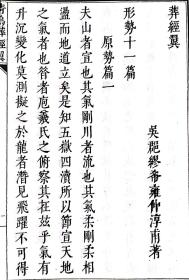 葬經翼
吳邑繆希雍仲淳甫著
形勢十一篇
原勢篇一
夫山者宣也其氣剛川者流也其氣柔剛柔相
盪而地道立矣是知五嶽四瀆所以節宣天地
之氣者也昔者庖羲氏之俯察其在茲乎氣有
升沉變化莫測擬之於龍者潛見飛躍不可得